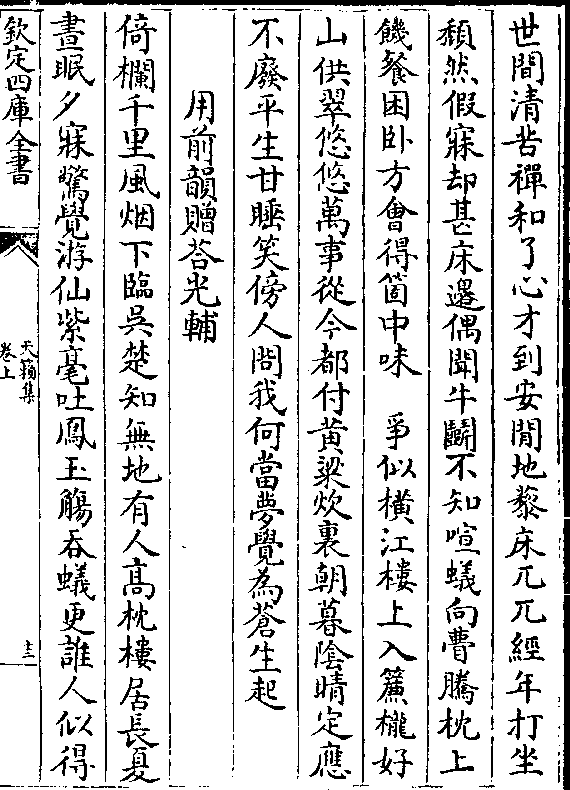 世間清苦禪和了心才到安閒地藜床兀兀經年打坐
頽然假寐却甚床邊偶聞牛鬬不知喧蟻向瞢騰枕上
饑餐困卧方㑹得箇中味　爭似橫江樓上入簾櫳好
山供翠悠悠萬事從今都付黄粱炊裏朝暮隂晴定應
不廢平生甘睡笑傍人問我何當夢覺為蒼生起
用前韻贈荅光輔
倚欄千里風烟下臨呉楚知無地有人髙枕樓居長夏
晝眠夕寐驚覺游仙紫毫吐鳳玉觴呑蟻更誰人似得
欽定四庫全書
天籟集
卷上
十三